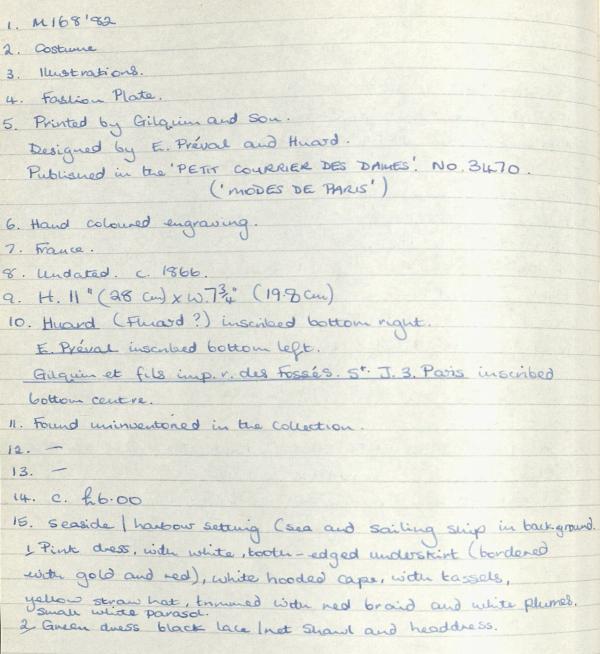 1. M168'82
2. Costume
3. Illustrations.
4. Fashion Plate.
5. Printed by Gilquin and Son.
Designed by E. Préval and Huard.
Published in the 'PETIT COURRIER DES DAMES'. No. 3470.
('MODES DE PARIS')
6. Hand coloured engraving.
7. France.
8. Undated. c. 1866.
9. H. 11" (28 cm) x W. 7 3/4" (19.8 cm)
10. Huard (Fluard?) inscribed bottom right.
E. Préval inscribed bottom left.
Gilquin et fils imp. r. des Fossés. St. J. 3. Paris inscribed
bottom centre.
11. Found uninventoried in the Collection.
12. —
13. —
14. c. £6.00
15. Seaside / harbour setting (sea and sailing ship in background.
1, Pink dress, with white, tooth-edged underskirt (bordered
with gold and red), white hooded cape, with tassels,
yellow straw hat, trimmed with red braid and white plumes.
small white parasol.
2, Green dress black lace / net shawl and headdress.